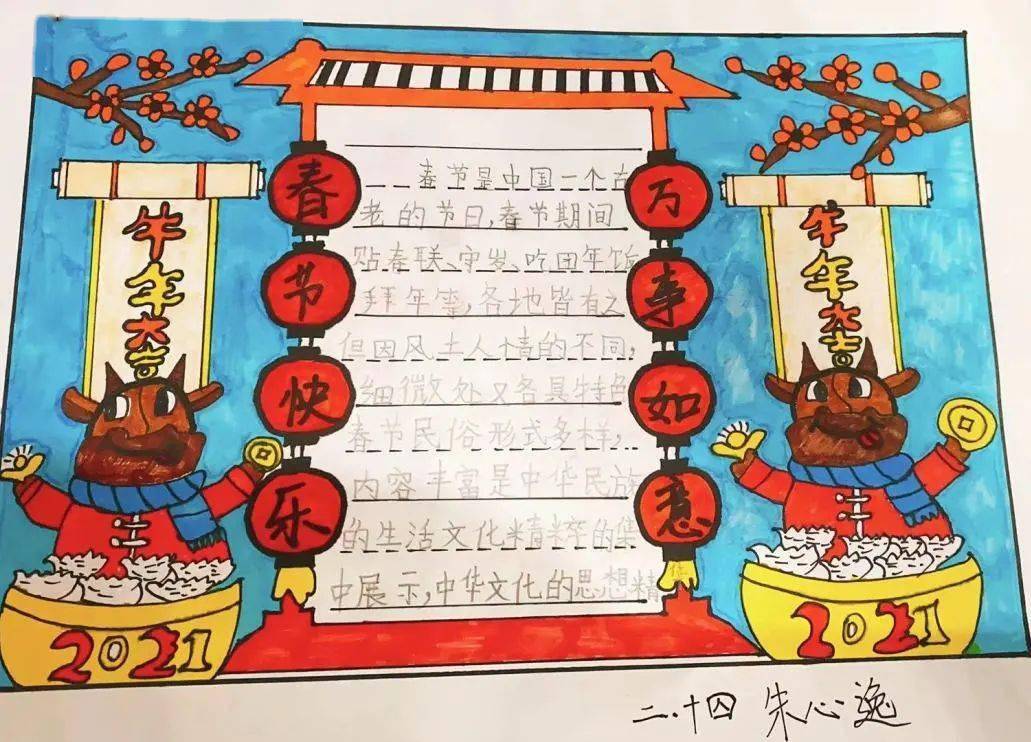 牛年大吉
春节快乐
春节是中国一个古
老的节日,春节期间
贴春联、守岁、吃团年饭
拜年等,各地皆有之
但因风土人情的不同,
细微处又各具特色
春节民俗形式多样,
内容丰富是中华民族
的生活文化精粹的集
中展示,中华文化的思想精华
万事如意
牛年大吉
2021
2021
二.十四 朱心逸